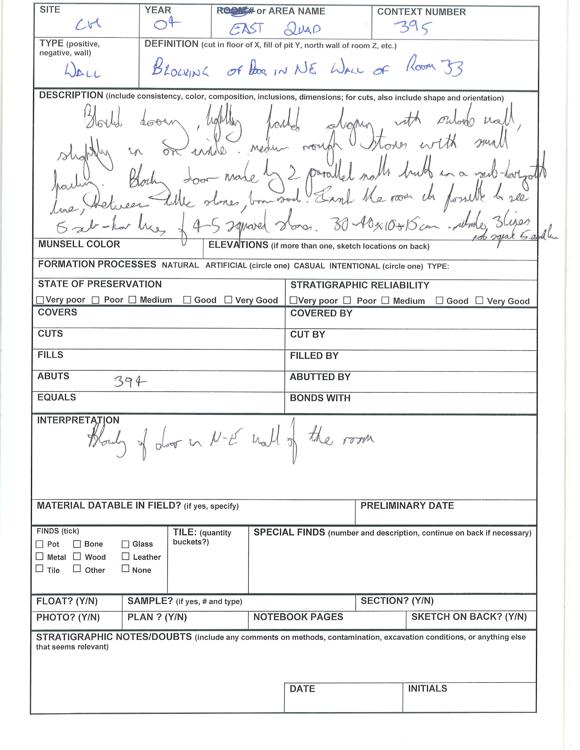 SITE YEAR ROOM# or AREA NAME CONTEXT NUMBER
CM 04 EAST QUAD 395
TYPE (positive, negative, wall) DEFINITION (cut in floor of X, fill of pit Y, north wall of room Z, etc.)
WALL BLOCKING OF DOOR IN NE WALL OF ROOM 33
DESCRIPTION (include consistency, color, composition, inclusions, dimensions; for cuts, also include shape and orientation)
with outside wall,
slightly in on inside. medium rough stones with small
door made by 2 parallel walls built in a sub-horizontal
line, between little stones, the room it's possible to see
5 sub-hor lines of 4-5 squared stones. 30-40x10x15 cm. 3 lines
MUNSELL COLOR ELEVATIONS (if more than one, sketch locations on back)
FORMATION PROCESSES NATURAL ARTIFICIAL (circle one) CASUAL INTENTIONAL (circle one) TYPE:
STATE OF PRESERVATION STRATIGRAPHIC RELIABILITY
Very poor Poor Medium Good Very Good Very poor Poor Medium Good Very Good
COVERS COVERED BY
CUTS CUT BY
FILLS FILLED BY
ABUTS 394 ABUTTED BY
EQUALS BONDS WITH
INTERPRETATION
of door in N-E wall of the room
MATERIAL DATABLE IN FIELD? (if yes, specify) PRELIMINARY DATE
FINDS (tick) TILE: (quantity buckets?) SPECIAL FINDS (number and description, continue on back if necessary)
Pot Bone Glass
Metal Wood Leather
Tile Other None
FLOAT? (Y/N) SAMPLE? (if yes, # and type) SECTION? (Y/N)
PHOTO? (Y/N) PLAN ? (Y/N) NOTEBOOK PAGES SKETCH ON BACK? (Y/N)
STRATIGRAPHIC NOTES/DOUBTS (include any comments on methods, contamination, excavation conditions, or anything else
that seems relevant)
DATE INITIALS